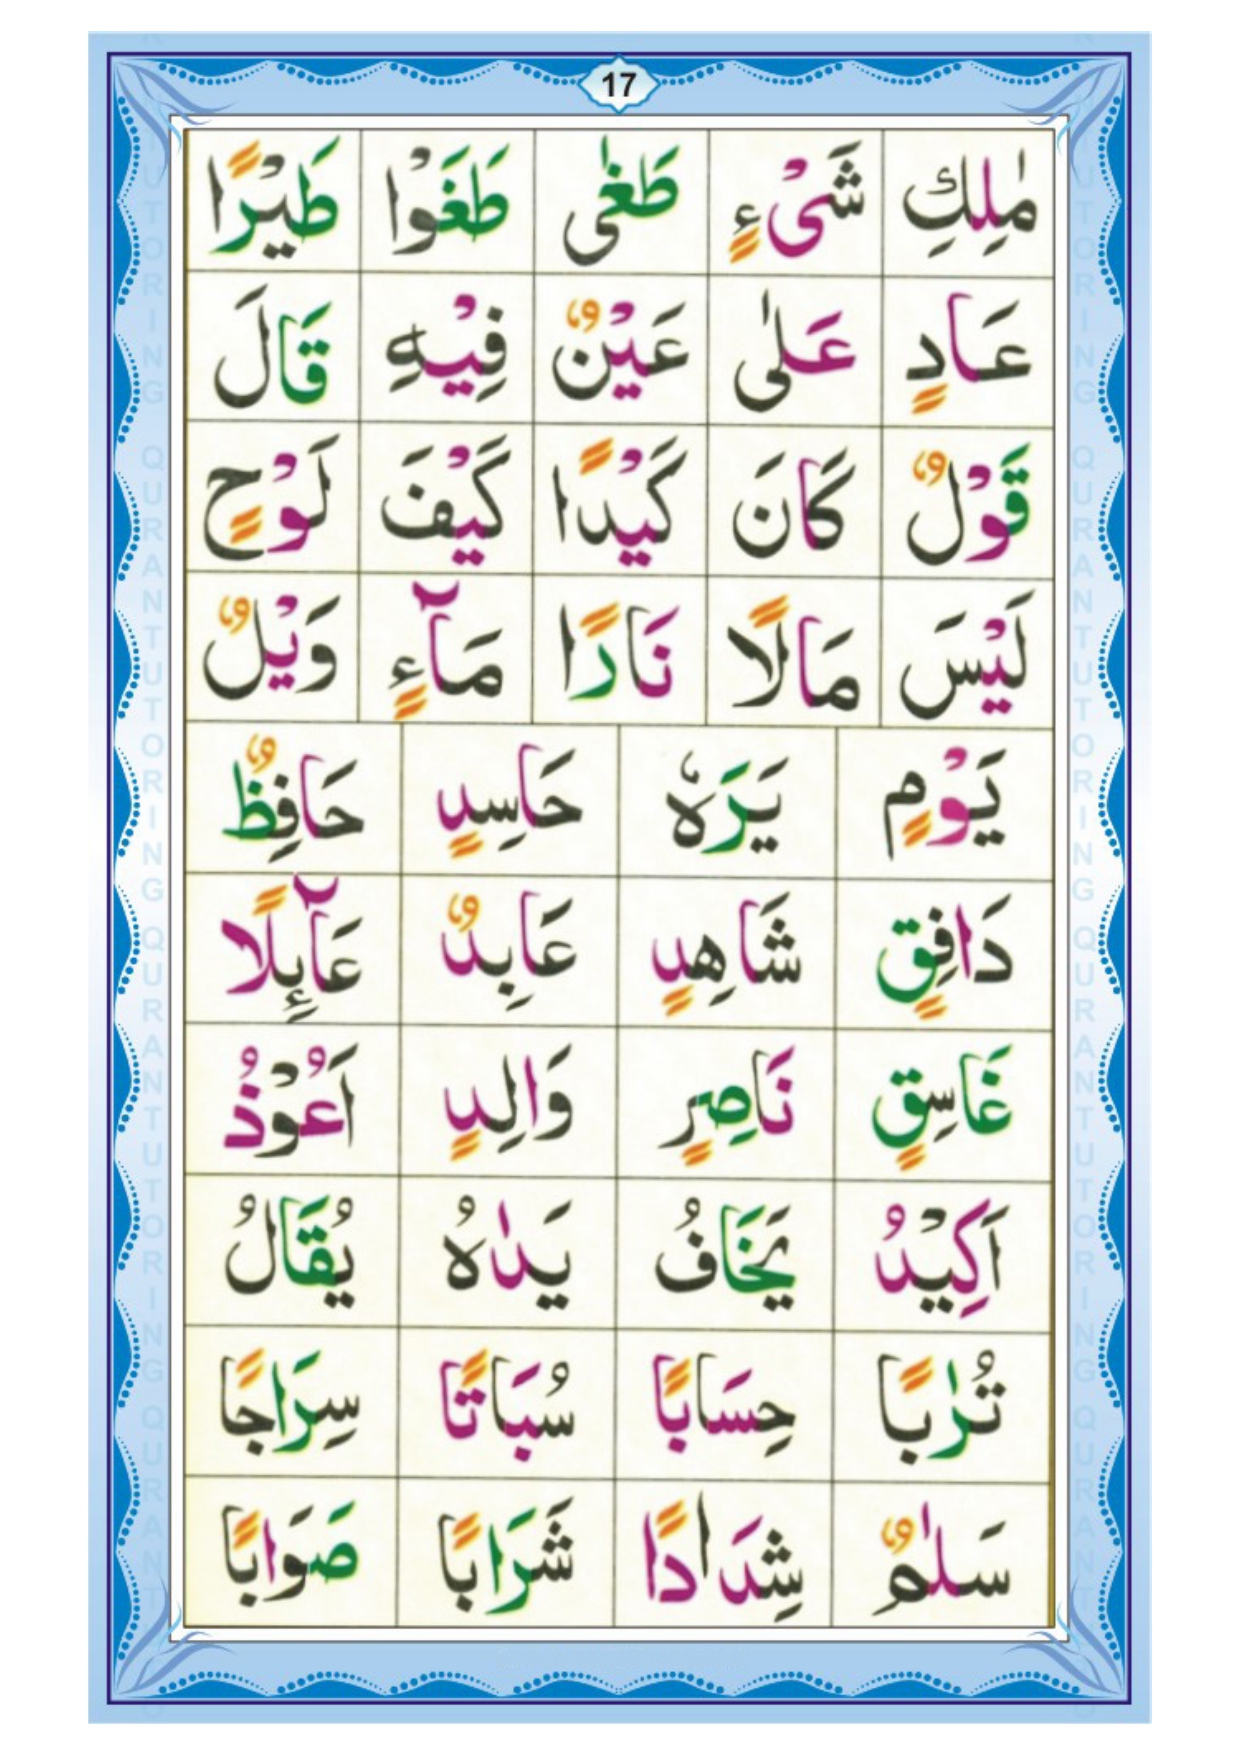 17
مٰلِكِ شَیْءٍ طَغٰی طَغَوْا طَیْرًا
عَادٍ عَلٰی عَیْنٌ فِیْهِ قَالَ
قَوْلٌ كَانَ كَیْدًا كَیْفَ لَوْحٍ
لَیْسَ مَالًا نَارًا مَآءٍ وَیْلٌ
یَوْمٍ یَرَهٗ حَاسِدٍ حَافِظٌ
دَافِقٍ شَاهِدٍ عَابِدٌ عَآئِلًا
غَاسِقٍ نَاصِرٍ وَالِدٍ اَعُوْذُ
اَكِیْدُ یَخَافُ یَدٰهُ یُقَالُ
تُرٰبًا حِسَابًا سُبَاتًا سِرَاجًا
سَلٰمٌ شِدَادًا شَرَابًا صَوَابًا
QURAN TUTORING QURAN TUTORING
QURAN TUTORING QURAN TUTORING